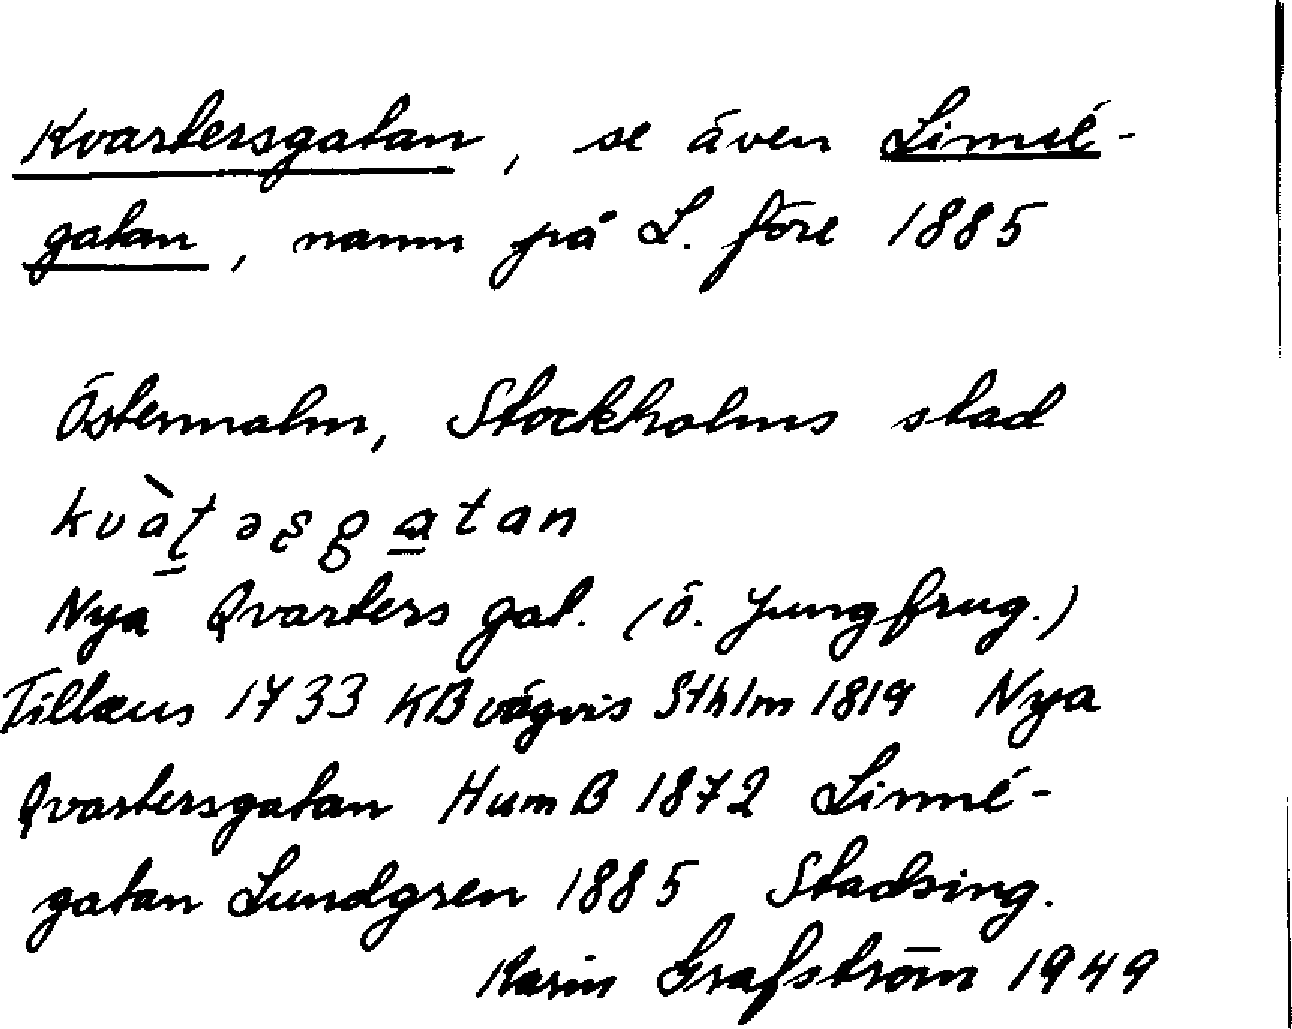 Kvartersgatan, se även Linné-
gatan, namn på L. före 1885
Östermalm, Stockholms stad
kvàʈəʂgatan
Nya Qvarters gat. (ö. Jungfrug.)
Tillæus 1733 KB vägvis Sthlm 1819 Nya
Qvartersgatan Hum B 1872 Linné-
gatan Lundgren 1885 Stadsing.
Karin Grafström 1949